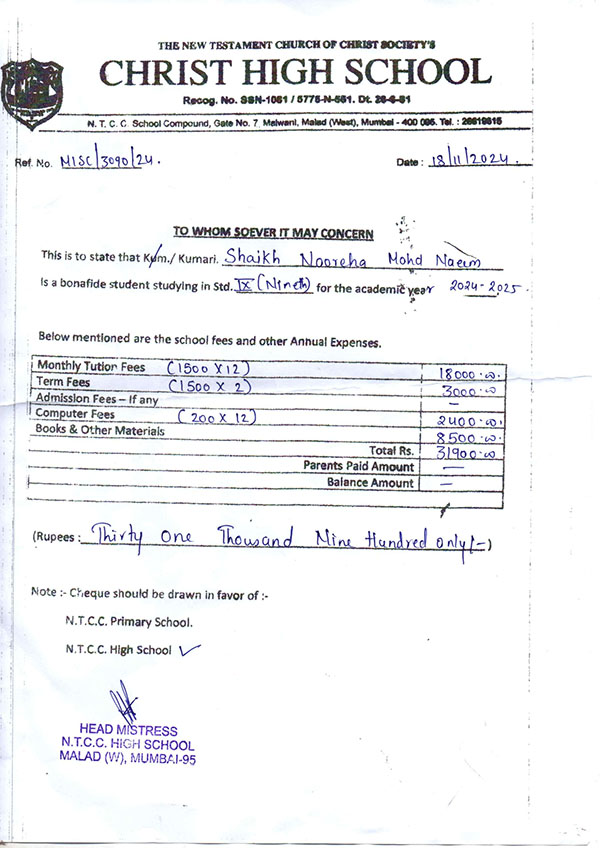 THE NEW TESTAMENT CHURCH OF CHRIST SOCIETY'S
CHRIST HIGH SCHOOL
Recog. No. SSN-1081 / 5775-N-551. Dt. 26-6-81
N. T. C. C. School Compound, Gate No. 7, Malwani, Malad (West), Mumbai - 400 095. Tel. : 28819815
Ref. No. MISC/3090/24. Date : 18/11/2024.
TO WHOM SOEVER IT MAY CONCERN
This is to state that Kum./ Kumari. Shaikh Nooreha Mohd Naeim
Is a bonafide student studying in Std. IX (Nineth) for the academic year 2024-2025
Below mentioned are the school fees and other Annual Expenses.
Monthly Tution Fees (1500 X 12) 18000.00.
Term Fees (1500 X 2) 3000.00
Admission Fees – If any —
Computer Fees (200 X 12) 2400.00.
Books & Other Materials 8500.00.
Total Rs. 31900.00
Parents Paid Amount —
Balance Amount —
(Rupees : Thirty One Thousand Nine Hundred only/-)
Note :- Cheque should be drawn in favor of :-
N.T.C.C. Primary School.
N.T.C.C. High School ✓
HEAD MISTRESS
N.T.C.C. HIGH SCHOOL
MALAD (W), MUMBAI-95